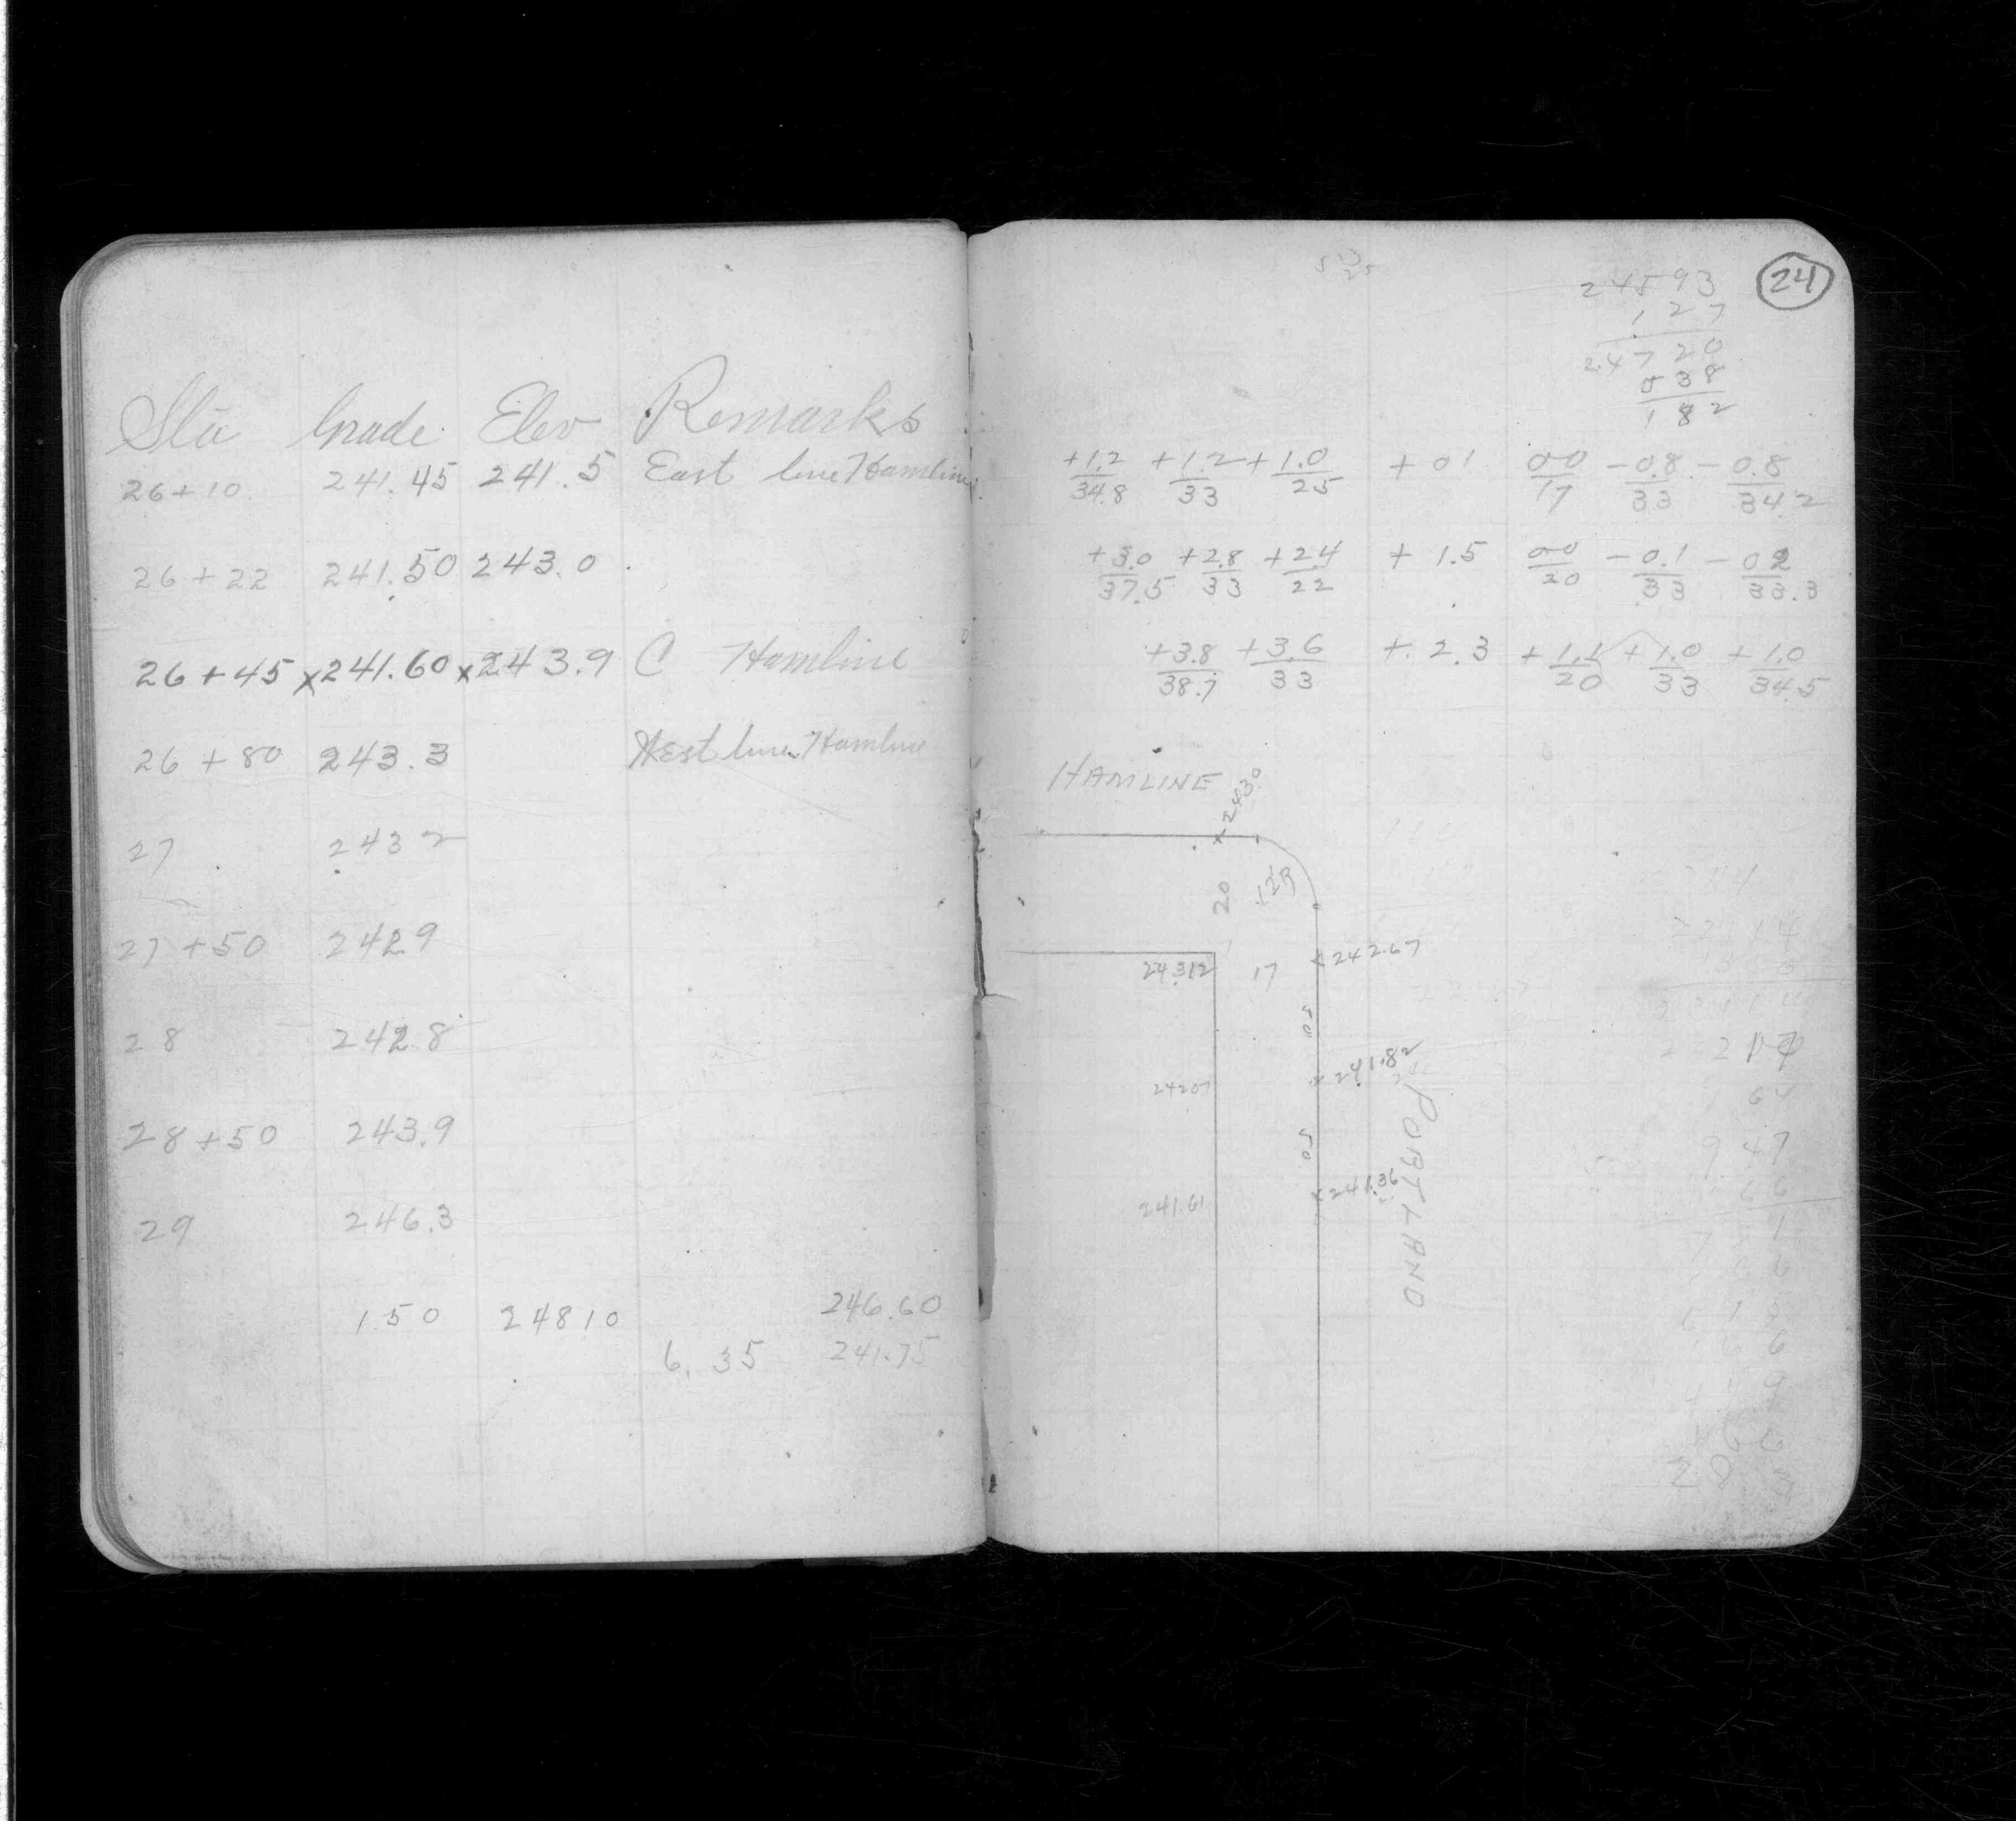 Sta Grade Elev Remarks
26+10 241.45 241.5 East line Hamline
26+22 241.50 243.0
26+45 x241.60 x243.9 C Hamline
26+80 243.3 West line Hamline
27 243 2
27+50 242.9
28 242.8
28+50 243.9
29 246.3
150 24810 246.60
6.35 241.75
24
24593
127
24720
538
182
+1.2/34.8 +1.2/33 +1.0/25 +01 00/17 -0.8/33 -0.8/34.2
+3.0/37.5 +2.8/33 +2.4/22 +1.5 00/20 -0.1/33 -02/33.3
+3.8/38.7 +3.6/33 +2.3 +1.1/20 +1.0/33 +1.0/34.5
HAMLINE
x 243.0
20
12R
243.12 17 x 242.67
50
24207 x 241.82
50
241.61 x 241.36
PORTLAND
9 47